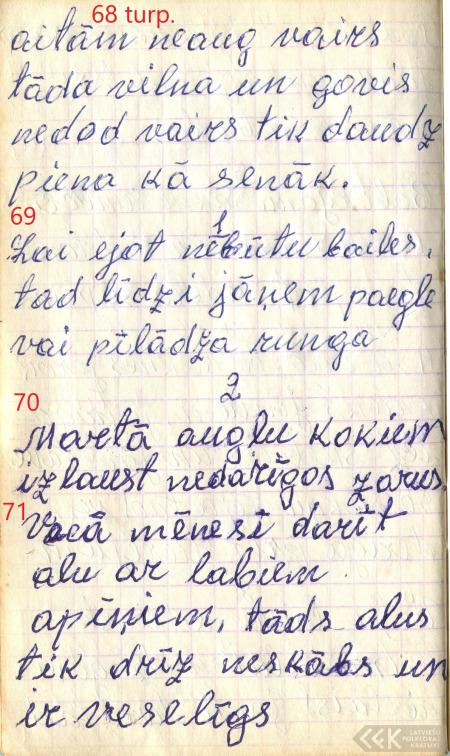 68 turp.
aitām neaug vairs
tāda vilna un govis
nedod vairs tik daudz
piena kā senāk.
69
1
Lai ejot nebūtu bailes,
tad līdzi jāņem paegle
vai pīlādža runga
2
70
Martā augļu kokiem
izlaust nedarīgos zarus.
71
Vecā mēnesī darīt
alu ar labiem
apīņiem, tāds alus
tik drīz neskābs un
ir veselīgs
LFK
LATVIEŠU
FOLKLORAS
KRĀTUVE